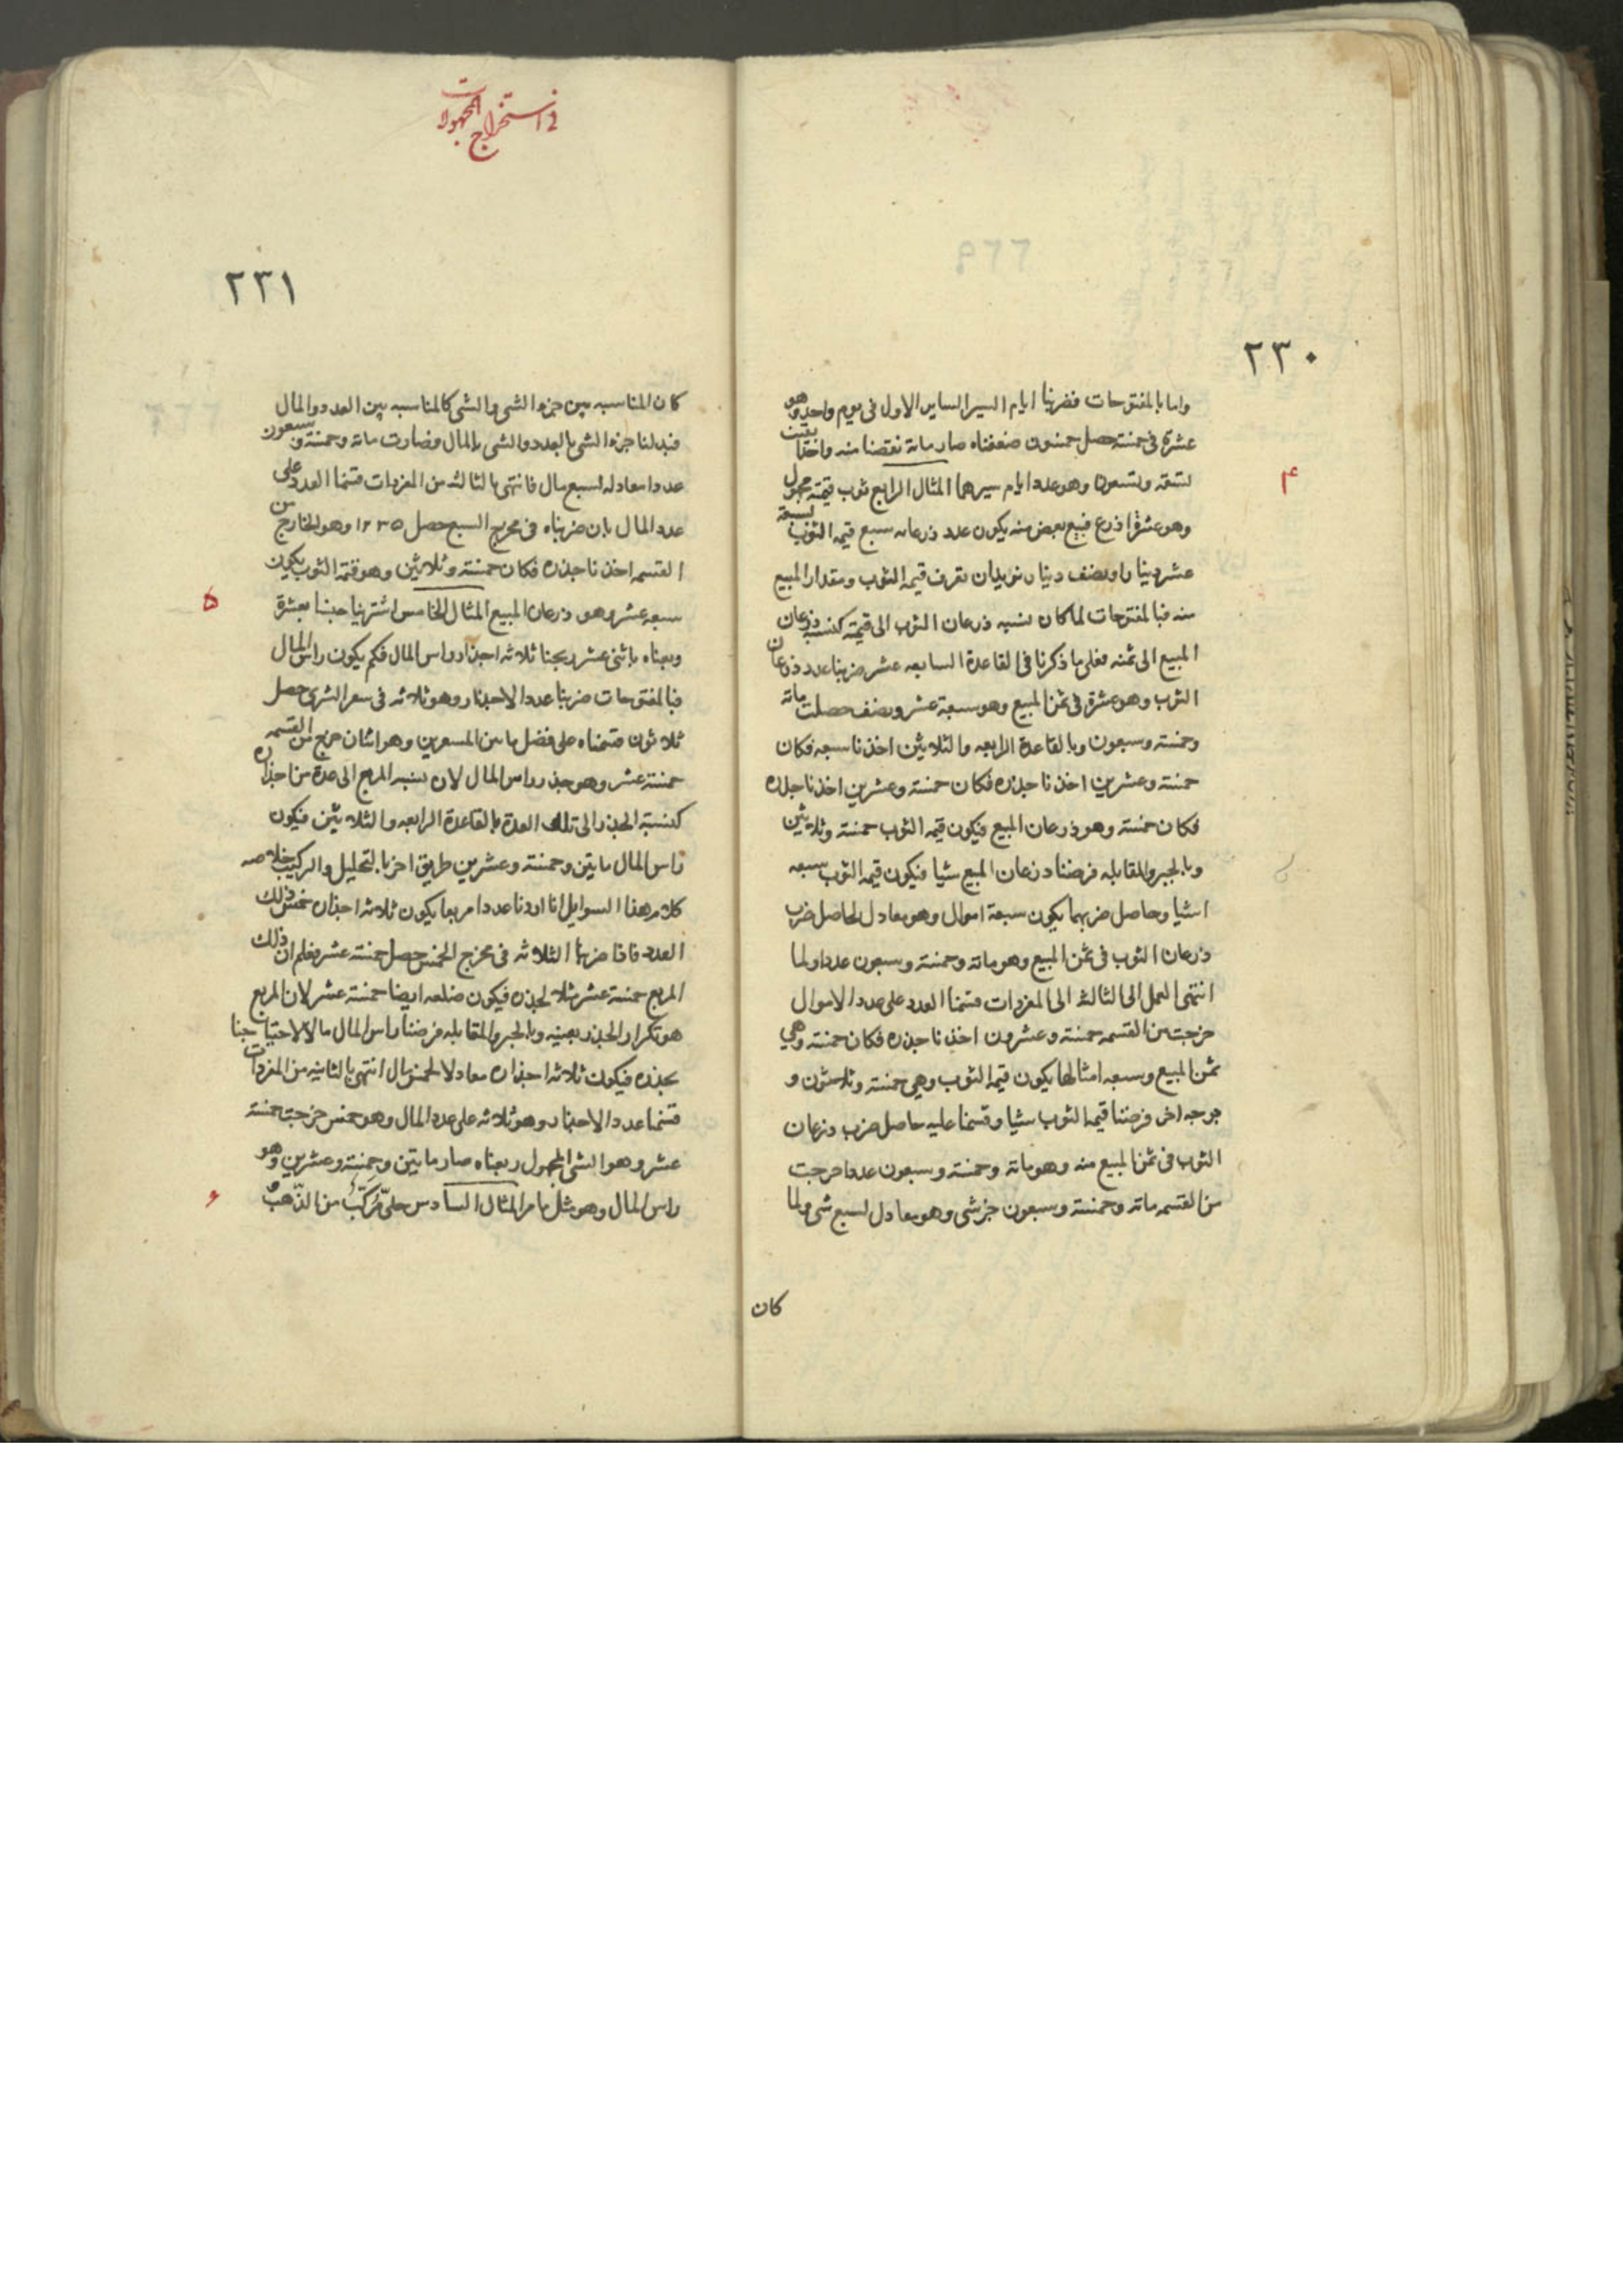 ٢٣٠
واما بالمفتوحات فضربنا ايام السير الساير الاول فى يوم واحد وهو
عشرة فى خمسة حصل خمسون ضعفناه صار مائة نقصنا منه واحدا بقيت
تسعة وتسعون وهو عدد ايام سيرهما المثال الرابع ثوب قيمته مجهول
٤
وهو عشرة اذرع فبيع بعض منه يكون عدد ذرعانه سبع قيمة الثوب بسبعة
عشر دينارا ونصف دينار نريد ان نعرف قيمة الثوب ومقدار المبيع
منه فبالمفتوحات لما كان نسبه ذرعان الثوب الى قيمته كنسبه ذرعان
المبيع الى ثمنه فعلى ما ذكرنا فى القاعدة السابعه عشر ضربنا عدد ذرعان
الثوب وهو عشرة فى ثمن المبيع وهو سبعة عشر ونصف حصلت مائه
وخمسة وسبعون وبالقاعدة الرابعه والثلاثين اخذنا سبعه فكان
خمسة وعشرين اخذنا جذره فكان خمسة وعشرين اخذنا جذره
فكان خمسة وهو ذرعان المبيع فيكون قيمه الثوب خمسة وثلاثين
وبالجبر والمقابله فرضنا ذرعان المبيع شيا فيكون قيمه الثوب سبعه
اشيا وحاصل ضربهما يكون سبعة اموال وهو معادل لحاصل ضرب
ذرعان الثوب فى ثمن المبيع وهو مائة وخمسة وسبعون عددا ولما
انتهى العمل الى الثالثه الى المفردات قسمنا العدد على عدد الاموال
خرجت من القسمه خمسة وعشرون اخذنا جذره فكان خمسة وهي
ثمن المبيع وسبعه امثالها يكون قيمه الثوب وهي خمسة وثلاثون و
بوجه اخر فرضنا قيمه الثوب شيا وقسمنا عليه حاصل ضرب ذرعان
الثوب فى ثمن المبيع منه وهو مائة وخمسة وسبعون عددا خرجت
من القسمه مائة وخمسة وسبعون جزشى وهو معادل لسبع شى ولما
كان
فى استخراج المجهولات
٢٣١
كان المناسبه بين جزء الشى والشى كالمناسبه بين العدد والمال
فبدلنا جزء الشى بالعدد والشى بالمال فصارت مائة وخمسة وسبعون
عددا معادله لسبع مال فانتهى بالثالثه من المفردات قسمنا العدد على
عدد المال بان ضربناه فى مخرج السبع حصل ١٢٢٥ وهو الخارج من
القسمه اخذنا جذره فكان خمسة وثلاثين وهو قيمة الثوب يكون
سبعه عشر وهو ذرعان المبيع المثال الخامس اشترينا جنسا بعشرة
٥
وبعناه باثنى عشر ربحنا ثلاثه اجذار راس المال فكم يكون راس المال
فبالمفتوحات ضربنا عدد الاجذار وهو ثلاثه فى سعر الشرى حصل
ثلاثون قسمناه على فضل ما بين السعرين وهو اثنان خرج من القسمه
خمسة عشر وهو جذر راس المال لان نسبه المربع الى عدة من اجذاره
كنسبة الجذر الى تلك العدة بالقاعدة الرابعه والثلاثين فيكون
راس المال مايتين وخمسة وعشرين طريق اخر بالتحليل والتركيب خلاصه
كلام هذا السوايل انا اردنا عددا مربعا يكون ثلاثه اجذاره خمس ذلك
العدد فاذا ضربنا الثلاثه فى مخرج الخمس حصل خمسة عشر فعلم ان ذلك
المربع خمسة عشر مثلا لجذره فيكون ضلعه ايضا خمسة عشر لان المربع
هو تكرار الجذر بعينه وبالجبر والمقابله فرضنا راس المال مالا لاحتياجنا
بجذره فيكون ثلاثه اجذاره معادلا لخمس مال انتهى بالثانيه من المفردات
قسمنا عدد الاجذار وهو ثلاثه على عدد المال وهو خمس خرجت خمسة
عشر وهو الشى المجهول ربعناه صار مايتين وخمسة وعشرين وهو
راس المال وهو مثل ما مر المثال السادس حلى مركب من الذهب
٦